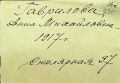 Гаврилова
Анна Михайловна
1917 г.
Столярная 37